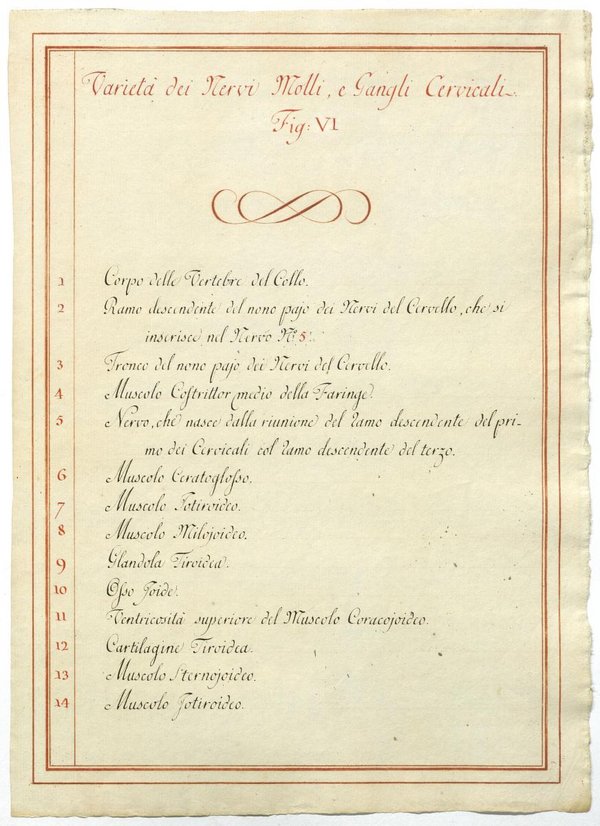 Varietà dei Nervi Molli, e Gangli Cervicali.
Fig: VI
1 Corpo delle Vertebre del Collo.
2 Ramo descendente del nono pajo dei Nervi del Cervello, che si
inserisce nel Nervo N.º 5.
3 Tronco del nono pajo dei Nervi del Cervello.
4 Muscolo Costrittor medio della Faringe.
5 Nervo, che nasce dalla riunione del ramo descendente del pri-
mo dei Cervicali col ramo descendente del terzo.
6 Muscolo Ceratoglosso.
7 Muscolo Jotiroideo.
8 Muscolo Milojoideo.
9 Glandola Tiroidea.
10 Osso Joide.
11 Ventricosità superiore del Muscolo Coracojoideo.
12 Cartilagine Tiroidea.
13 Muscolo Sternojoideo.
14 Muscolo Jotiroideo.